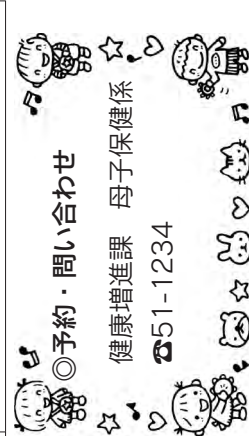 ◎予約・問い合わせ
健康増進課　母子保健係
☎51-1234